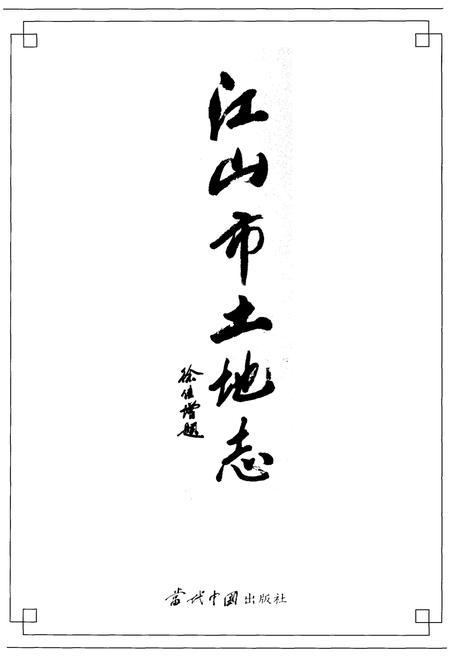 江山市土地志
徐佳增题
当代中国出版社